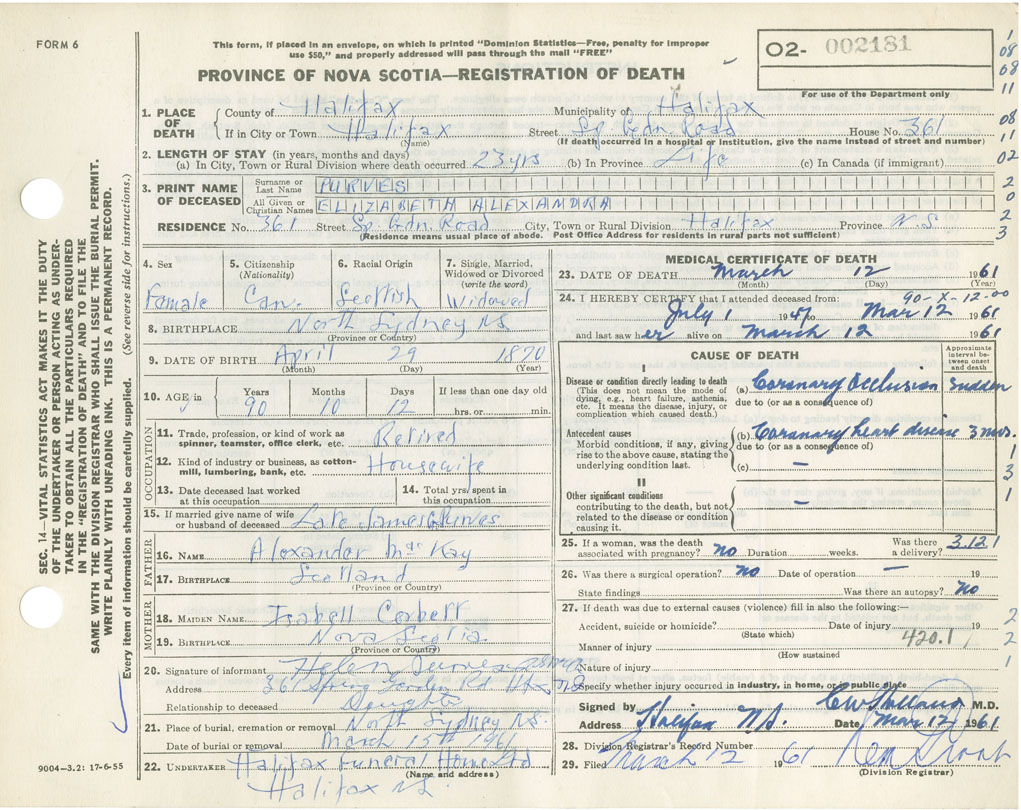 FORM 6
This form, if placed in an envelope, on which is printed "Dominion Statistics—Free, penalty for improper
use $50," and properly addressed will pass through the mail "FREE"
O2- 002181
For use of the Department only
PROVINCE OF NOVA SCOTIA—REGISTRATION OF DEATH
1. PLACE OF DEATH
County of Halifax Municipality of Halifax
If in City or Town Halifax Street Sp. Gdn. Road House No. 361
(Name) (If death occurred in a hospital or institution, give the name instead of street and number)
2. LENGTH OF STAY (in years, months and days)
(a) In City, Town or Rural Division where death occurred 23 yrs (b) In Province Life (c) In Canada (if immigrant)
3. PRINT NAME OF DECEASED
Surname or Last Name PURVES
All Given or Christian Names ELIZABETH ALEXANDRA
RESIDENCE No. 361 Street Sp. Gdn. Road City, Town or Rural Division Halifax Province N.S
(Residence means usual place of abode. Post Office Address for residents in rural parts not sufficient)
4. Sex Female
5. Citizenship (Nationality) Can.
6. Racial Origin Scottish
7. Single, Married, Widowed or Divorced (write the word) Widowed
8. BIRTHPLACE North Sydney NS
(Province or Country)
9. DATE OF BIRTH April 29 1870
(Month) (Day) (Year)
10. AGE in Years 90 Months 10 Days 12 If less than one day old
hrs. or min.
OCCUPATION
11. Trade, profession, or kind of work as spinner, teamster, office clerk, etc. Retired
12. Kind of industry or business, as cotton-mill, lumbering, bank, etc. Housewife
13. Date deceased last worked at this occupation
14. Total yrs. spent in this occupation
15. If married give name of wife or husband of deceased Late James Purves
FATHER
16. NAME Alexander MacKay
17. BIRTHPLACE Scotland
(Province or Country)
MOTHER
18. MAIDEN NAME Isabell Corbett
19. BIRTHPLACE Nova Scotia
(Province or Country)
20. Signature of informant Helen Purves
Address 361 Spring Garden Rd Hfx NS
Relationship to deceased Daughter
21. Place of burial, cremation or removal North Sydney N.S.
Date of burial or removal March 15th 1961
22. UNDERTAKER Halifax Funeral Home Ltd
(Name and address)
Halifax NS.
9004—3.2: 17-6-55
MEDICAL CERTIFICATE OF DEATH
23. DATE OF DEATH March 12 1961
(Month) (Day) (Year)
90-X-12-00
24. I HEREBY CERTIFY that I attended deceased from:
July 1 19 to Mar 12 1961
and last saw her alive on March 12 1961
CAUSE OF DEATH
Approximate interval between onset and death
I
Disease or condition directly leading to death
(This does not mean the mode of dying, e.g., heart failure, asthenia, etc. It means the disease, injury, or complication which caused death.)
(a) Coronary Occlusion sudden
due to (or as a consequence of)
Antecedent causes
Morbid conditions, if any, giving rise to the above cause, stating the underlying condition last.
(b) Coronary heart disease 3 mos.
due to (or as a consequence of)
(c) —
II
Other significant conditions
contributing to the death, but not related to the disease or condition causing it.
—
25. If a woman, was the death associated with pregnancy? No Duration weeks. Was there a delivery? 3.121
26. Was there a surgical operation? No Date of operation — 19
State findings Was there an autopsy? No
27. If death was due to external causes (violence) fill in also the following:—
Accident, suicide or homicide? Date of injury 19
(State which)
420.1
Manner of injury
(How sustained
Nature of injury
Specify whether injury occurred in industry, in home, or in public place
Signed by M.D.
Address Halifax N.S. Date Mar 12 1961
28. Division Registrar's Record Number
29. Filed March 12 1961
(Division Registrar)
SEC. 14—VITAL STATISTICS ACT MAKES IT THE DUTY
OF THE UNDERTAKER OR PERSON ACTING AS UNDER-
TAKER TO OBTAIN ALL THE PARTICULARS REQUIRED
IN THE "REGISTRATION OF DEATH" AND TO FILE THE
SAME WITH THE DIVISION REGISTRAR WHO SHALL ISSUE THE BURIAL PERMIT.
WRITE PLAINLY WITH UNFADING INK. THIS IS A PERMANENT RECORD.
Every item of information should be carefully supplied. (See reverse side for instructions.)
1
08
08
11
08
11
02
2
0
2
3
1
3
1
2
2
1